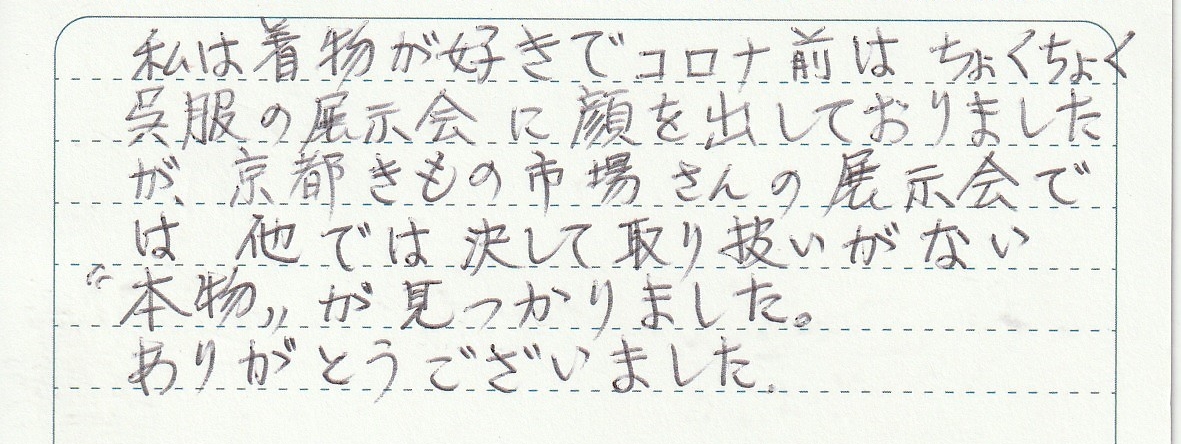 私は着物が好きでコロナ前はちょくちょく
呉服の展示会に顔を出しておりました
が、京都きもの市場さんの展示会で
は他では決して取り扱いがない
〝本物〟が見つかりました。
ありがとうございました。